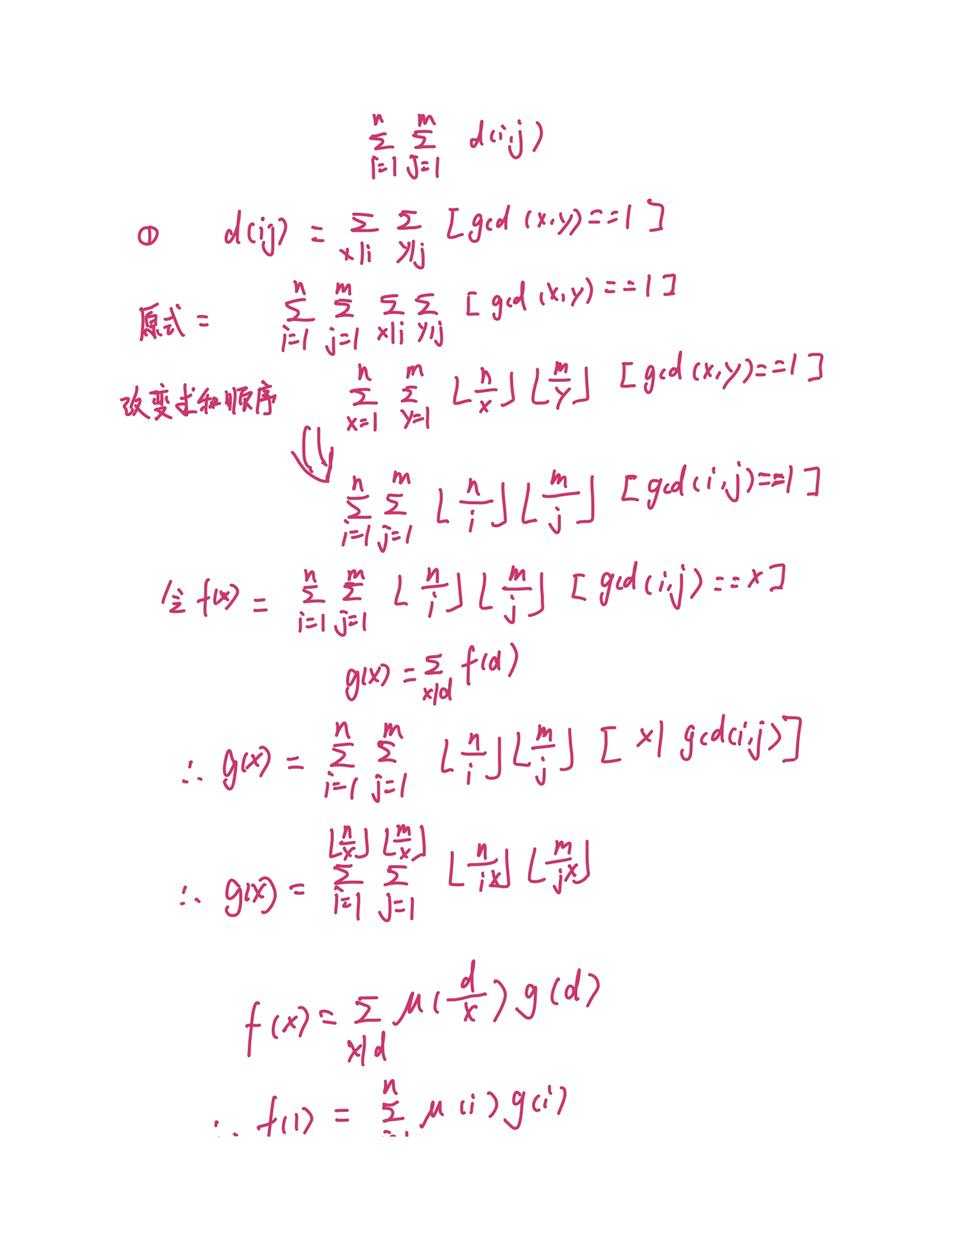 $\sum_{i=1}^{n} \sum_{j=1}^{m} d(i,j)$
① $d(ij) = \sum_{x|i} \sum_{y|j} [gcd(x,y)==1]$
原式 = $\sum_{i=1}^{n} \sum_{j=1}^{m} \sum_{x|i} \sum_{y|j} [gcd(x,y)==1]$
改变求和顺序 $\sum_{x=1}^{n} \sum_{y=1}^{m} \lfloor\frac{n}{x}\rfloor \lfloor\frac{m}{y}\rfloor [gcd(x,y)==1]$
⇓ $\sum_{i=1}^{n} \sum_{j=1}^{m} \lfloor\frac{n}{i}\rfloor \lfloor\frac{m}{j}\rfloor [gcd(i,j)==1]$
令 $f(x) = \sum_{i=1}^{n} \sum_{j=1}^{m} \lfloor\frac{n}{i}\rfloor \lfloor\frac{m}{j}\rfloor [gcd(i,j)==x]$
$g(x) = \sum_{x|d} f(d)$
∴ $g(x) = \sum_{i=1}^{n} \sum_{j=1}^{m} \lfloor\frac{n}{i}\rfloor \lfloor\frac{m}{j}\rfloor [x|gcd(i,j)]$
∴ $g(x) = \sum_{i=1}^{\lfloor\frac{n}{x}\rfloor} \sum_{j=1}^{\lfloor\frac{m}{x}\rfloor} \lfloor\frac{n}{ix}\rfloor \lfloor\frac{m}{jx}\rfloor$
$f(x) = \sum_{x|d} \mu(\frac{d}{x}) g(d)$
∴ $f(1) = \sum^{n} \mu(i) g(i)$